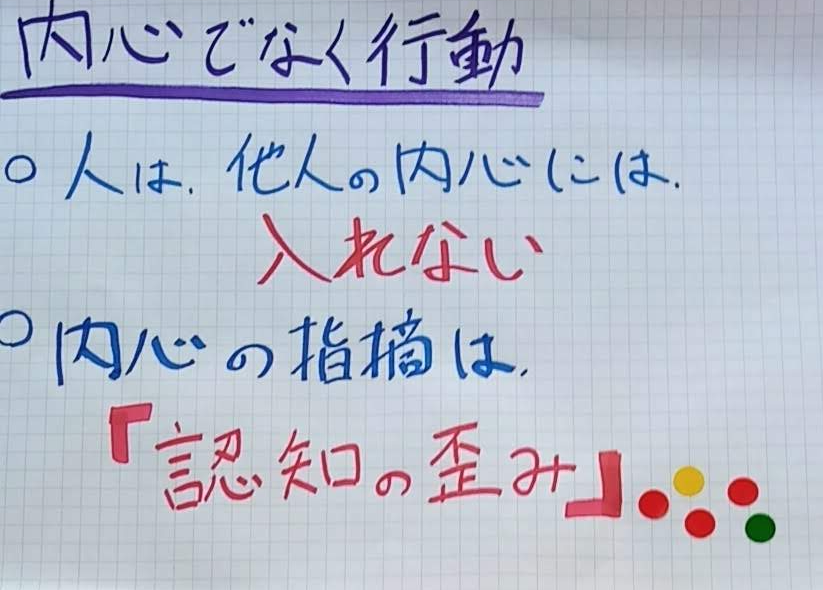 内心でなく行動
○ 人は、他人の内心には、
入れない
○ 内心の指摘は、
『認知の歪み』